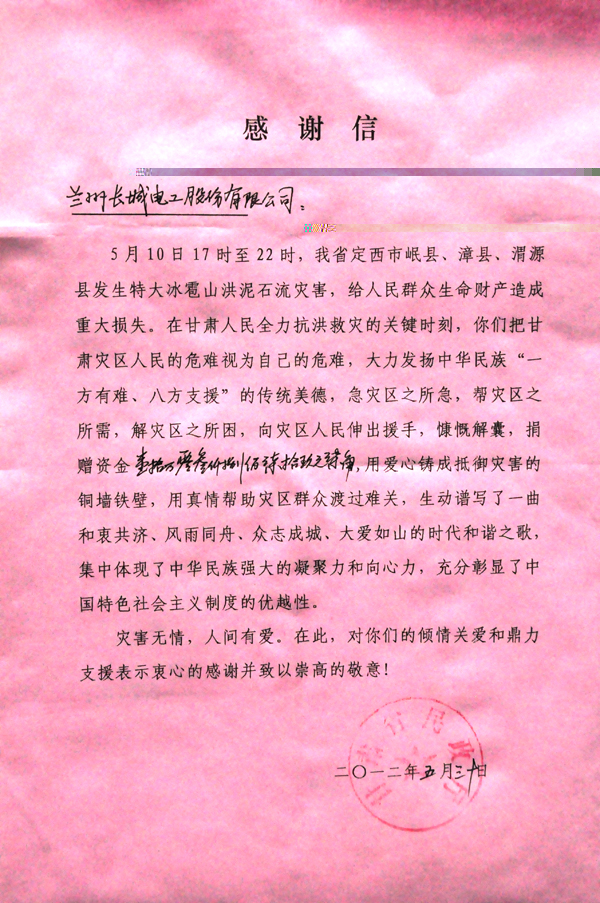 感谢信
兰州长城电工股份有限公司：
5月10日17时至22时，我省定西市岷县、漳县、渭源
县发生特大冰雹山洪泥石流灾害，给人民群众生命财产造成
重大损失。在甘肃人民全力抗洪救灾的关键时刻，你们把甘
肃灾区人民的危难视为自己的危难，大力发扬中华民族“一
方有难、八方支援”的传统美德，急灾区之所急，帮灾区之
所需，解灾区之所困，向灾区人民伸出援手，慷慨解囊，捐
赠资金壹拾万零叁仟捌佰柒拾玖元柒角，用爱心铸成抵御灾害的
铜墙铁壁，用真情帮助灾区群众渡过难关，生动谱写了一曲
和衷共济、风雨同舟、众志成城、大爱如山的时代和谐之歌，
集中体现了中华民族强大的凝聚力和向心力，充分彰显了中
国特色社会主义制度的优越性。
灾害无情，人间有爱。在此，对你们的倾情关爱和鼎力
支援表示衷心的感谢并致以崇高的敬意！
甘肃省民政厅
二〇一二年五月三十日